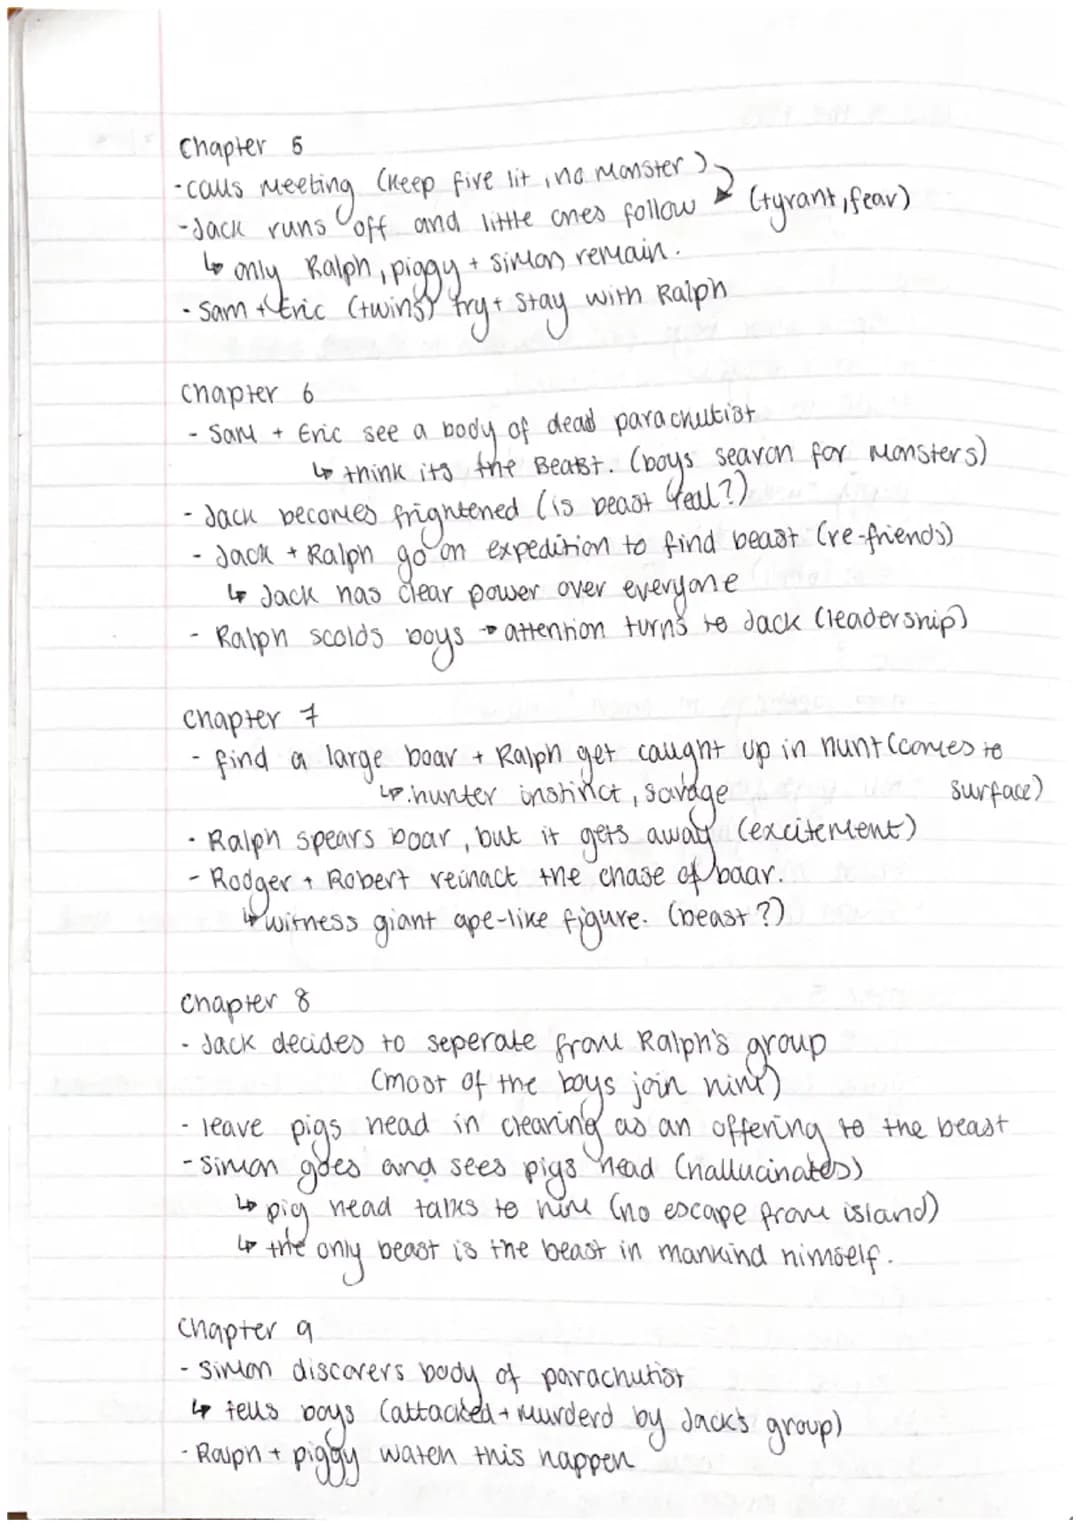 Chapter 5
-calls meeting (Keep fire lit, no monster)
-Jack runs off and little ones follow (tyrant, fear)
↳ only Ralph, piggy + simon remain.
- Sam + Eric (twins) try + stay with Ralph
Chapter 6
- Sam + Eric see a body of dead parachutist
↳ think its the Beast. (boys search for monsters)
- Jack becomes frightened (is beast real?)
- Jack + Ralph go on expedition to find beast (re-friends)
↳ Jack has clear power over everyone
- Ralph scolds boys → attention turns to Jack (leadership)
Chapter 7
- find a large boar + Ralph get caught up in hunt (comes to
↳ hunter instinct, savage surface)
- Ralph spears boar, but it gets away (excitement)
- Rodger + Robert reinact the chase of boar.
↳ witness giant ape-like figure. (beast?)
Chapter 8
- Jack decides to seperate from Ralph's group
(most of the boys join him)
- leave pigs head in clearing as an offering to the beast
- Simon goes and sees pigs head (hallucinates)
↳ pig head talks to him (no escape from island)
↳ the only beast is the beast in mankind himself.
Chapter 9
- Simon discovers body of parachutist
↳ tells boys (attacked + murderd by Jack's group)
- Ralph + piggy watch this happen